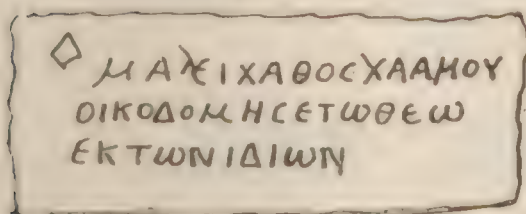 ΜΑΛΕΙΧΑΘΟϹΧΑΑΜΟΥ
ΟΙΚΟΔΟΜΗϹΕΤωΘΕω
ΕΚΤωΝΙΔΙωΝ